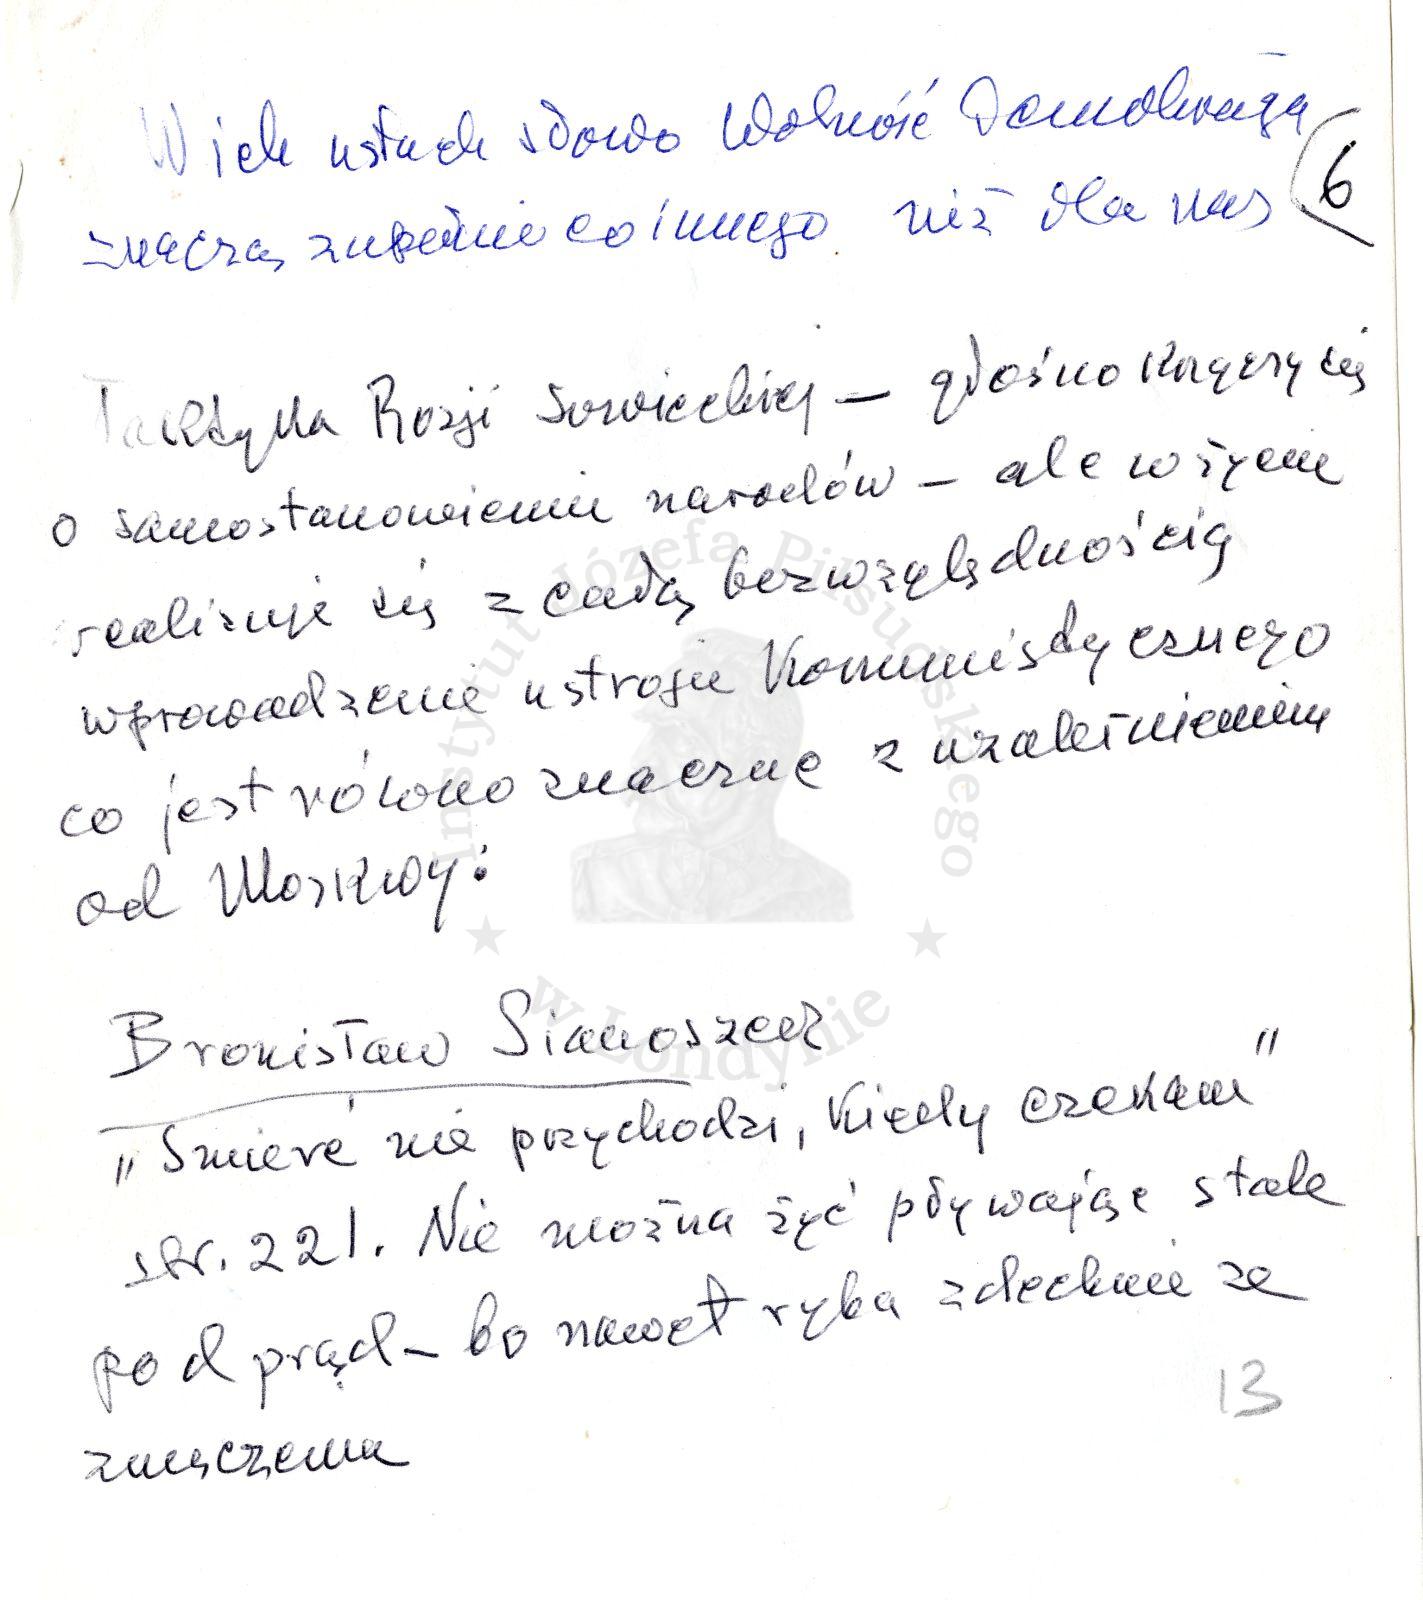 W ich ustach słowo Wolność Demokracja
6
znaczą zupełnie co innego niż dla nas
Taktyka Rosji Sowieckiej — głośno krzyczy się
o samostanowieniu narodów — ale w życie
realizuje się z całą bezwzględnością
wprowadzenie ustroju Komunistycznego
co jest równoznaczne z uzależnieniem
od Moskwy:
Bronisław Sianoszek
„Smierć nie przychodzi, kiedy czekam"
str. 221. Nie można żyć pływając stale
pod prąd — bo nawet ryba zdechnie ze
zmęczenia
13
Instytut Józefa Piłsudskiego
w Londynie